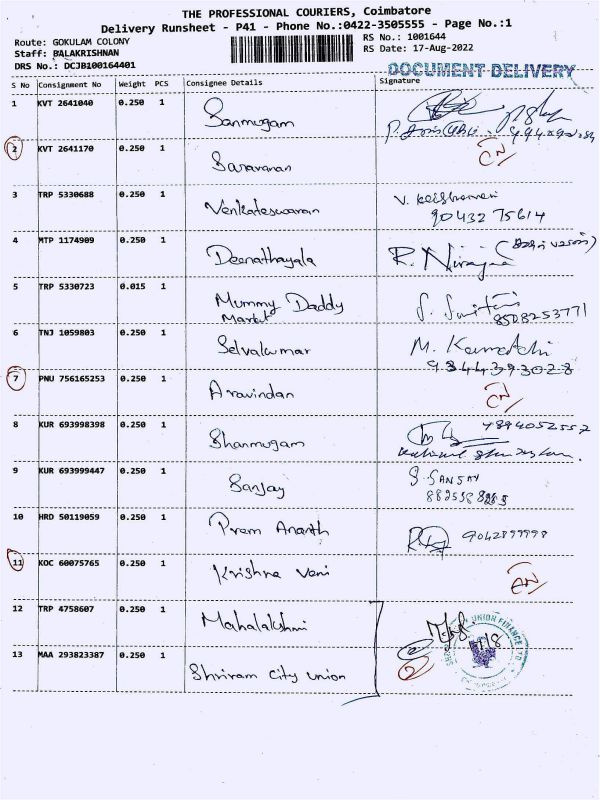 THE PROFESSIONAL COURIERS, Coimbatore
Delivery Runsheet - P41 - Phone No.:0422-3505555 - Page No.:1
Route: GOKULAM COLONY
Staff: BALAKRISHNAN
DRS No.: DCJB100164401
RS No.: 1001644
RS Date: 17-Aug-2022
DOCUMENT DELIVERY
S No Consignment No Weight PCS Consignee Details Signature
1 KVT 2641040 0.250 1 Sanmugam
2 KVT 2641170 0.250 1 Saravanan CN
3 TRP 5330688 0.250 1 Venkateswaran V.
9043275614
4 MTP 1174909 0.250 1 Deenathayala R.
5 TRP 5330723 0.015 1 Mummy Daddy
Market S.
8508253771
6 TNJ 1059803 0.250 1 Selvakumar M. Kamatchi
9344393028
7 PNU 756165253 0.250 1 Aravindan CN
8 KUR 693998398 0.250 1 Shanmugam 4894052557
9 KUR 693999447 0.250 1 Sanjay S. SANJAY
10 HRD 50119059 0.250 1 Prem Ananth 9042899998
11 KOC 60075765 0.250 1 Krishna Veni AN
12 TRP 4758607 0.250 1 Mahalakshmi
13 MAA 293823387 0.250 1 Shriram City Union 2
UNION FINANCE LTD